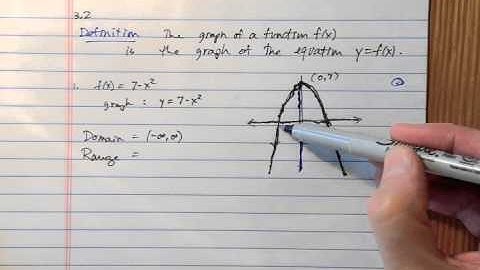 3.2
Definition The graph of a function f(x)
is the graph of the equation y=f(x).
1. f(x) = 7-x²
graph : y = 7-x²
(0,7)
Domain = (-∞,∞)
Range =
Sharpie